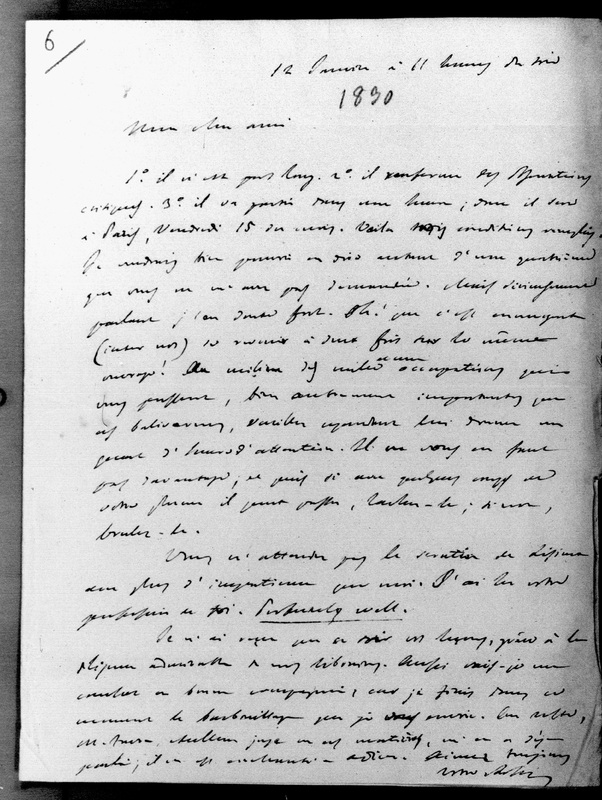 6
12 Janvier à 11 heures du soir
1830
Mon cher ami
1º. il n'est pas long. 2º. il renferme des
critiques. 3º. il va partir dans une heure ; donc il sera
à Paris, Vendredi 15 du mois. Voila trois conditions remplies.
Je voudrais bien pouvoir en dire autant d'une quatrième
que vous ne m'avez pas demandée. Mais
parlant j'en doute fort. Oh! que c'est ennuyeux
(inter nos) de revenir à deux fois sur le même
ouvrage! Au milieu des mille occupations qui
vous pressent, bien autrement importantes que
ces balivernes, veuillez cependant lui donner un
quart d'heure d'attention. Il ne vous en faut
pas davantage ; et puis si avec quelques coups de
votre plume il peut passer, lachez-le ; si non,
brulez-le.
Vous n'attendez pas le scrutin de
avec plus d'impatience que moi. J'ai lu votre
profession de foi. Perfectly well.
Je n'ai reçu que ce soir vos leçons, grâce à la
admirable de nos libraires. Aussi vais-je me
coucher en bonne compagnie, car je finis dans ce
moment le barbouillage que je vous envoie. Au reste,
juge en ces matières, m'en a déjà
parlé ; il en est enchanté - adieu. Aimez toujours
votre